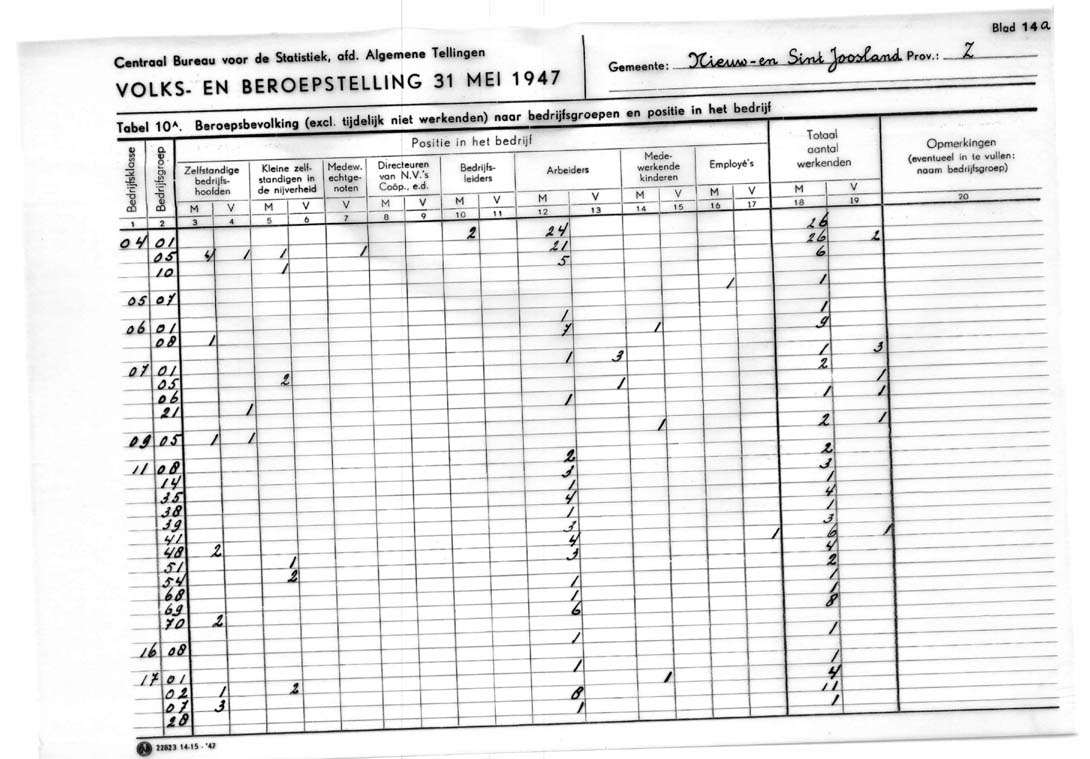 Blad 14a
Centraal Bureau voor de Statistiek, afd. Algemene Tellingen
VOLKS- EN BEROEPSTELLING 31 MEI 1947
Gemeente: Nieuw- en Sint Joosland Prov.: Z
Tabel 10A. Beroepsbevolking (excl. tijdelijk niet werkenden) naar bedrijfsgroepen en positie in het bedrijf
Bedrijfsklasse
Bedrijfsgroep
Positie in het bedrijf
Zelfstandige bedrijfs-hoofden
Kleine zelf-standigen in de nijverheid
Medew. echtge-noten
Directeuren van N.V.'s Coöp., e.d.
Bedrijfs-leiders
Arbeiders
Mede-werkende kinderen
Employé's
Totaal aantal werkenden
Opmerkingen (eventueel in te vullen: naam bedrijfsgroep)
M V M V V M V M V M V M V M V M V
1 2 3 4 5 6 7 8 9 10 11 12 13 14 15 16 17 18 19 20
04 01 2 24 26
05 4 1 1 1 21 26 2
10 1 5 6
05 07 1 1
06 01 1 1
08 1 7 1 9
07 01 1 3 1 3
05 2 2
06 1 1
21 1 1 1 1
09 05 1 1 1 2 1
11 08 2 2
14 3 3
35 1 1
38 4 4
39 1 1
41 3 3
48 2 4 1 6 1
51 1 3 4
54 2 2
68 1 1
69 1 1
70 2 6 8
16 08 1 1
17 01 1 1
02 1 2 1 4
07 3 8 11
28 1 1
22823 14-15 - '47